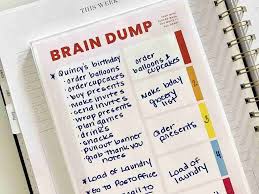 THIS WEEK
BRAIN DUMP
* Quincy's birthday
- order balloons
- order cupcakes
- buy presents
- make invites
- send invites
- wrap presents
- plan games
- drinks
- snacks
- printout banner
- grab thank you notes
* Load of laundry
* Go to Post office
order balloons & cupcakes
1
Make bday grocery list
2
Order presents
3
Load of laundry
4